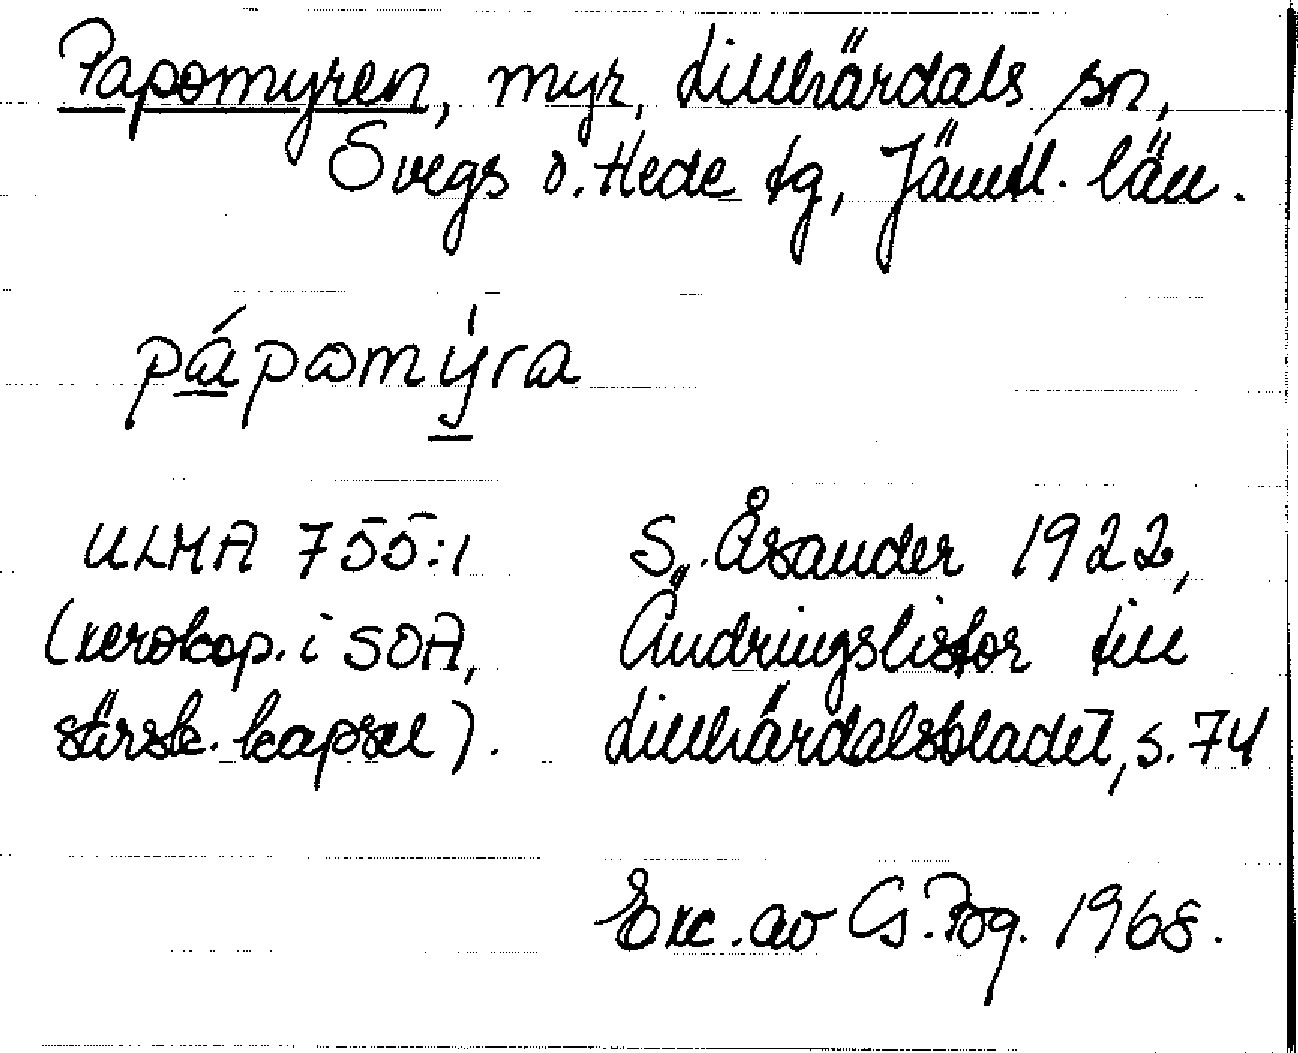 Papomyren, myr, Lillhärdals sn,
Svegs o. Hede tg, Jämtl. län.
pápomýra
ULMA 755:1
(xerokop. i SOA,
särsk. kapsel).
S. Åsander 1922,
Ändringslistor till
Lillhärdalsbladet, s. 74
Exc. av G. 1968.